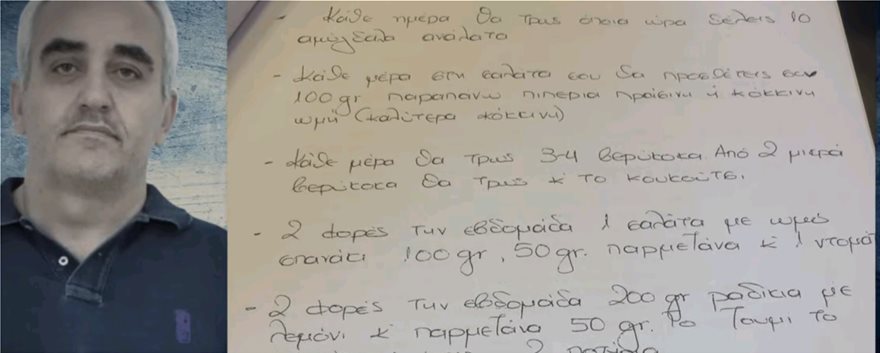 - Κάθε ημέρα θα τρως όποια ώρα θέλεις 10
αμύγδαλα ανάλατα
- Κάθε μέρα στη σαλάτα σου θα προσθέτεις
100gr παραπάνω πιπεριά πράσινη ή κόκκινη
ωμή (καλύτερα κόκκινη)
- Κάθε μέρα θα τρως 3-4 βερύκοκα. Από 2 μικρά
βερύκοκα θα τρως κ το κουκούτσι.
- 2 φορές την εβδομάδα 1 σαλάτα με ωμό
σπανάκι 100gr, 50gr. παρμετζάνα κ 1 ντομά
- 2 φορές την εβδομάδα 200 gr ραδίκια με
λεμόνι κ παρμετζάνα 50 gr. Το ζουμί το
2 ποτήρια